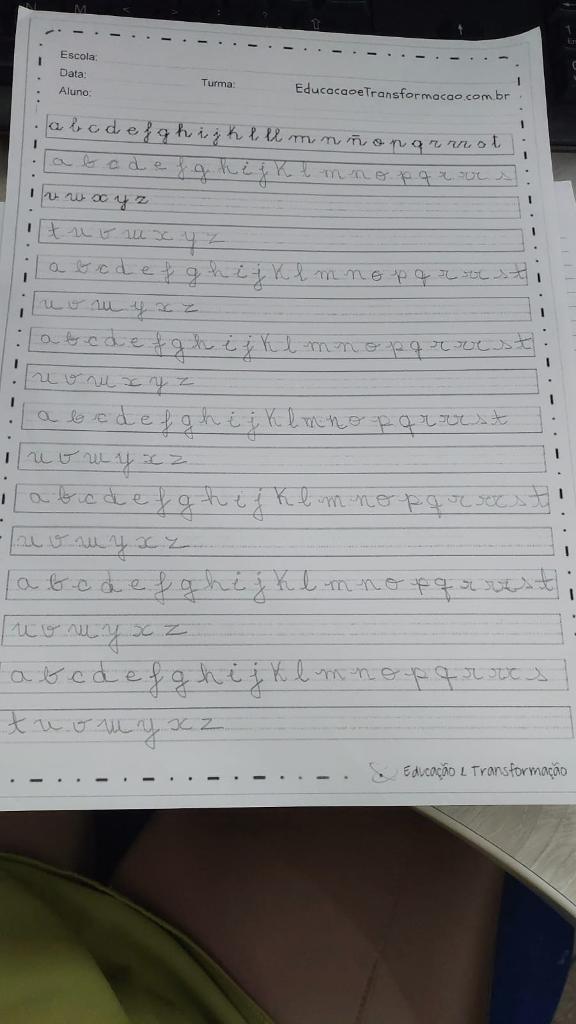 Escola:
Data:
Turma:
EducacaoeTransformacao.com.br
Aluno:
a b c d e f g h i j k l ll m n ñ o p q r rr s t
a b c d e f g h i j K l m n o p q r rr s
u v w x y z
t u v w x y z
a b c d e f g h i j K l m n o p q r rr s t
u v w y x z
a b c d e f g h i j K l m n o p q r rr s t
u v w x y z
a b c d e f g h i j K l m n o p q r rr s t
u v w y x z
a b c d e f g h i j K l m n o p q r rr s t
u v w y x z
a b c d e f g h i j K l m n o p q r rr s t
u v w y x z
a b c d e f g h i j K l m n o p q r rr s
t u v w y x z
Educação e Transformação